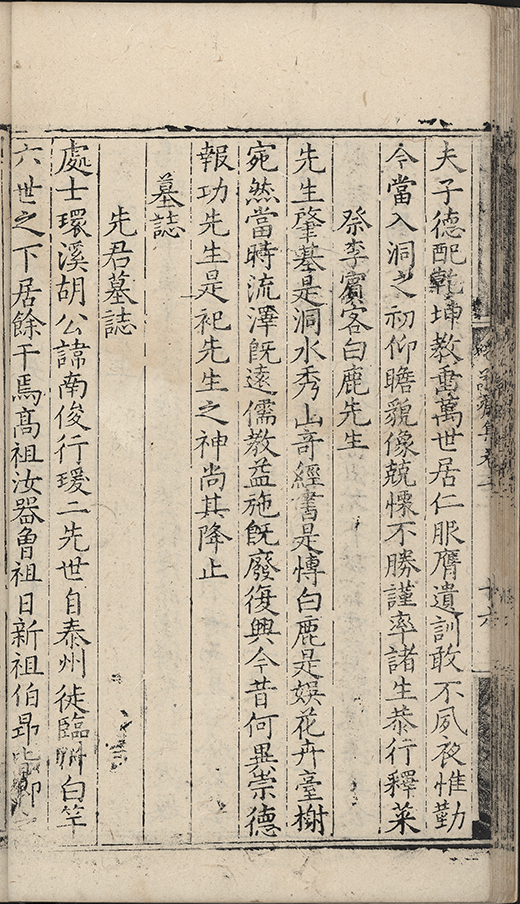 夫子德配乾坤教重萬世居仁服膺遺訓敢不夙夜惟勤
今當入洞之初仰瞻貌像兢慄不勝謹率諸生恭行釋菜
祭李賓客白鹿先生
先生肇基是洞水秀山奇經書是愽白鹿是娛花卉臺榭
宛然當時流澤旣遠儒教益施旣廢復興今昔何異崇德
報功先生是祀先生之神尚其降止
墓誌
先君墓誌
處士環溪胡公諱南俊行瑗二先世自泰州徙臨川白竿
六世之下居餘干焉髙祖汝器魯祖日新祖伯昻
十六